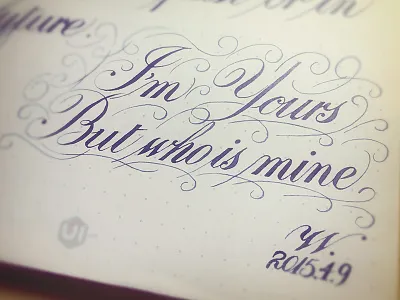 or in
future.
I'm Yours
But who is mine
W.
2015.4.9